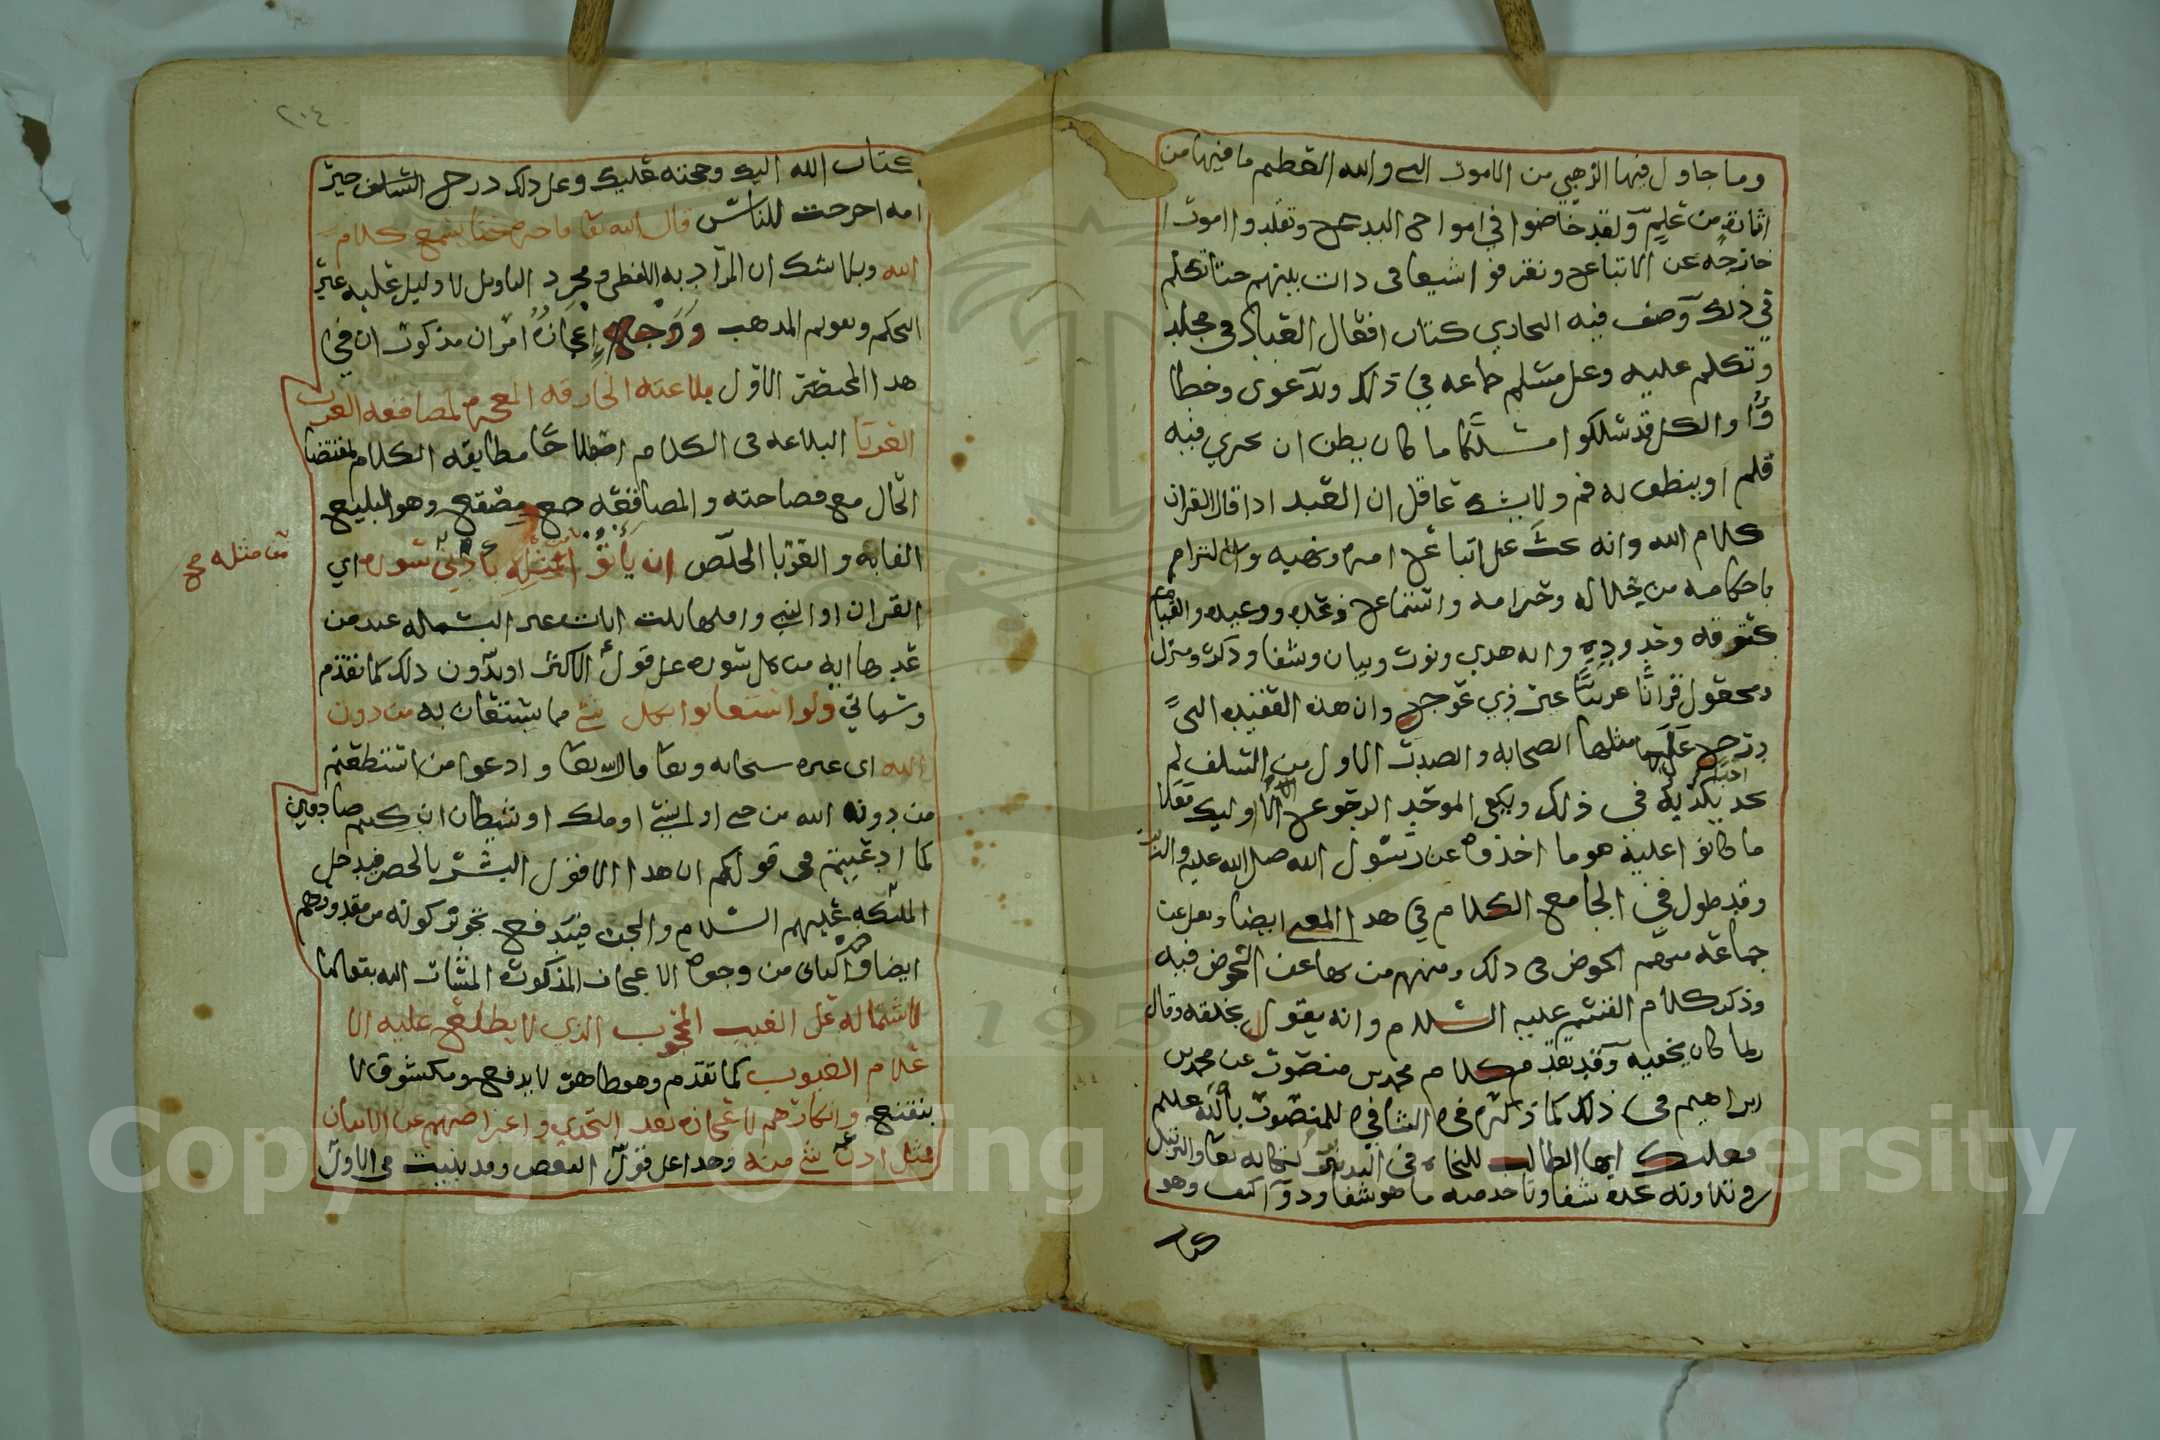 وما جاول فيها الزهبي من الامور التي والله العظيم ما فيها من
اثارة من علم ولقد خاضوا في امواج البدع وتقلدوا امورا
خارجه عن الاتباع وتفرقوا شيعا في ذات بينهم حتا تكلم
في ذلك وصنف فيه البخاري كتاب افعال العباد في مجلد
وتكلم عليه وعلى مسلم جماعه في ذلك وبدعوى وخطا
والكل قد سلكوا مسلكا ما كان يظن ان يجري فيه
قلم او ينطق له فم ولا يشك عاقل ان العبد اذا قال القران
كلام الله وانه يحث على اتباع امره ونهيه والالتزام
باحكامه من حلاله وحرامه واستماع وعده ووعيده والقيام
بحقوقه وحدوده وانه هدى ونور وبيان وشفا وذكر ومنزل
ومجعول قرانا عربيا غير ذي عوج وان هذه العقيده التي
درج على مثلها الصحابه والصدر الاول من السلف لم
يحد بكذبه في ذلك ويكفي الموحد الرجوع الى اوليك فعلا
ما كانوا عليه هو ما اخذوه عن رسول الله صلى الله عليه واله
وقد طول في الجامع الكلام في هذا المعنى ايضا ونقل عن
جماعة منهم الخوض في ذلك ومنهم من نها عن الخوض فيه
وذكر كلام القسم عليه السلام وانه يقول بخلقه وقال
ربما كان يخفيه وقد تقدم كلام محمد بن منصور عن محمد بن
ابراهيم في ذلك كما ذكره في الشافي للمنصور بالله عليلم
فعليك ايها الطالب للنجاه في التدبر لكتابه تعا والترتيل
في تلاوته تجده شفا وتاخذ منه ما هو شفا ودوا كيف وهو
كتاب
٢٠٤
كتاب الله اليك وحجته عليك وعلى ذلك درج السلف خير
امه اخرجت للناس قال الله تعا فاجره حتا يسمع كلام
الله وبلا شك ان المراد به اللفظي ومجرد التاويل لا دليل عليه غير
التحكم وتقويم المذهب ووجه اعجازه امران مذكوران في
هذا المختصر الاول بلاغته الخارقه المعجزة لمصاقعه العرب
العربا البلاغه في الكلام اصطلاحا مطابقه الكلام لمقتضا
الحال مع فصاحته والمصاقعه جمع مصقع وهو البليغ
الغايه والعربا الخلّص ان ياتوا بمثله بادنى سوره اي
من مثله صح
القران او النبي واقلها ثلث ايات غير البسمله عند من
عدها ايه من كل سوره على قول الاكثر او بدون ذلك كما تقدم
وسياتي ولو استعانوا بكل شي مما يستعان به من دون
الله اى غيره سبحانه وتعا قال الله تعا وادعوا من استطعتم
من دون الله من جني او انسي او ملك او شيطان ان كنتم صادقين
كما ادعيتم في قولكم ان هذا الا قول البشر بالحصر فيدخل
الملئكه عليهم السلام والجن فيندفع تجويز كونه من مقدورهم
ايضا والثاني من وجوه الاعجاز المذكور المشار اليه بقولنا
لاشتماله على الغيب المحجوب الذي لا يطلع عليه الا
علام الغيوب كما تقدم وهو ظاهر لا يدفع ومكشوف لا
يتقنع وانكارهم لاعجازه بعد التحدي واعراضهم عن الاتيان
بمثل ادنى شي منه وهذا على قول البعض وقد بنيت في الاول